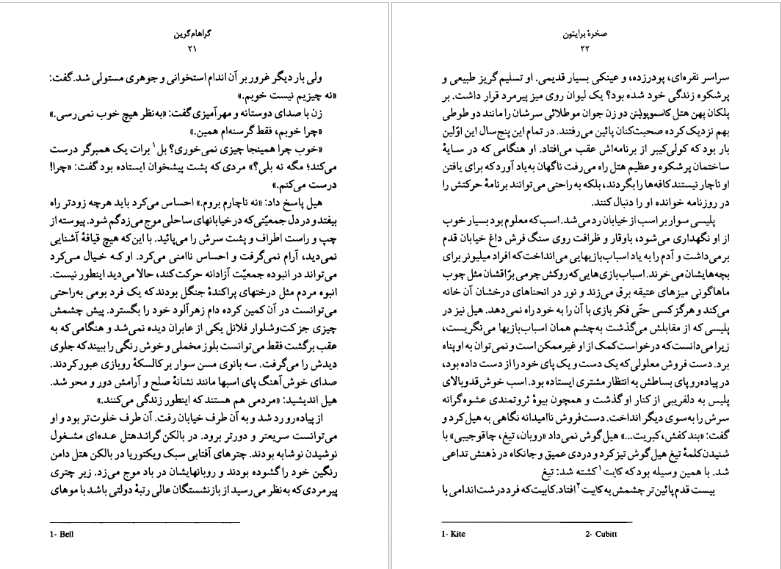 گراهام گرین
۲۱
ولی بار دیگر غرور بر آن اندام استخوانی و جوهری مستولی شد. گفت:
«نه چیزیم نیست خوبم.»
زن با صدای دوستانه و مهرآمیزی گفت: «به‌نظر هیچ خوب نمی‌رسی.»
«چرا خوبم، فقط گرسنه‌ام همین.»
«خوب چرا همینجا چیزی نمی‌خوری؟ بل۱ برات یک همبرگر درست
می‌کند؛ مگه نه بلی؟» مردی که پشت پیشخوان ایستاده بود گفت: «چرا!
درست می‌کنم.»
هیل پاسخ داد: «نه ناچارم بروم.» احساس می‌کرد باید هرچه زودتر راه
بیفتد و در دل جمعیّتی که در خیابانهای ساحلی موج می‌زد گم شود. پیوسته از
چپ و راست اطراف و پشت سرش را می‌پائید. با این‌که هیچ قیافهٔ آشنایی
نمی‌دید، آرام نمی‌گرفت و احساس ناامنی می‌کرد. او که خیال می‌کرد
می‌تواند در انبوده جمعیّت آزادانه حرکت کند، حالا می‌دید اینطور نیست.
انبوه مردم مثل درختهای پراکندهٔ جنگل بودند که یک فرد بومی به‌راحتی
می‌توانست در آن کمین کرده دام زهرآلود خود را بگسترد. پیش چشمش
چیزی جز کت‌وشلوار فلانل یکی از عابران دیده نمی‌شد و هنگامی که به
عقب برگشت فقط می‌توانست بلوز مخملی و خوش رنگی را ببیند که جلوی
دیدش را می‌گرفت. سه بانوی مسن سوار بر کالسکهٔ روبازی عبور کردند.
صدای خوش‌آهنگ پای اسبها مانند نشانهٔ صلح و آرامش دور و محو شد.
هیل اندیشید: «مردمی هم هستند که اینطور زندگی می‌کنند.»
از پیاده‌رو رد شد و به آن طرف خیابان رفت. آن طرف خلوت‌تر بود و او
می‌توانست سریعتر و دورتر برود. در بالکن گراندهتل عده‌ای مشغول
نوشیدن نوشابه بودند. چترهای آفتابی سبک ویکتوریا در بالکن هتل دامن
رنگین خود را گشوده بودند و روبانهایشان در باد موج می‌زد. زیر چتری
پیرمردی که به‌نظر می‌رسید از بازنشستگان عالی رتبهٔ دولتی باشد با موهای
1- Bell
صخرهٔ برایتون
۲۲
سراسر نقره‌ای، پودرزده، و عینکی بسیار قدیمی. او تسلیم گریز طبیعی و
پرشکوه زندگی خود شده بود؟ یک لیوان روی میز پیرمرد قرار داشت. بر
پلکان پهن هتل کاسموپولیتن دو زن جوان موطلائی سرشان را مانند دو طوطی
بهم نزدیک کرده صحبت‌کنان پائین می‌رفتند. در تمام این پنج‌سال این اوّلین
بار بود که کولی‌کیبر از برنامه‌اش عقب می‌افتاد. او هنگامی که در سایهٔ
ساختمان پرشکوه و عظیم هتل راه می‌رفت ناگهان به‌یاد آورد که برای یافتن
او ناچار نیستند کافه‌ها را بگردند، بلکه به راحتی می‌توانند برنامهٔ حرکتش را
در روزنامه خوانده او را دنبال کنند.
پلیسی سوار بر اسب از خیابان رد می‌شد. اسب که معلوم بود بسیار خوب
از او نگهداری می‌شود، باوقار و ظرافت روی سنگ فرش داغ خیابان قدم
برمی‌داشت و آدم را به یاد اسباب‌بازیهایی می‌انداخت که افراد میلیونر برای
بچه‌هایشان می‌خرند. اسباب‌بازی‌هایی که روکش جرمی برّاقشان مثل چوب
ماهاگونی میزهای عتیقه برق می‌زند و نور در انحناهای درخشان آن خانه
می‌کند و هرگز کسی حتّی فکر بازی با آن را به خود راه نمی‌دهد. هیل نیز در
پلیسی که از مقابلش می‌گذشت به‌چشم همان اسباب‌بازیها می‌نگریست،
زیرا می‌دانست که درخواست کمک از او غیرممکن است و نمی‌توان به او پناه
برد. دست فروش معلولی که یک دست و یک پای خود را از دست داده بود،
در پیاده‌رو پای بساطش به انتظار مشتری ایستاده بود. اسب خوش قدوبالای
پلیس به دلفریبی از کنار او گذشت و همچون بیوهٔ ثروتمندی عشوه‌گرانه
سرش را به‌سوی دیگر انداخت. دست‌فروش ناامیدانه نگاهی به هیل کرد و
گفت: «بند کفش، کبریت...» هیل گوش نمی‌داد «روبان، تیغ، چاقوجیبی» با
شنیدن کلمهٔ تیغ هیل گوش تیز کرد و دردی عمیق و جانکاه در ذهنش تداعی
شد. با همین وسیله بود که کایت۱ کشته شد: تیغ
بیست قدم پائین‌تر چشمش به کابیت۲ افتاد. کابیت که فرد درشت‌اندامی با
1- Kite 2- Cubitt